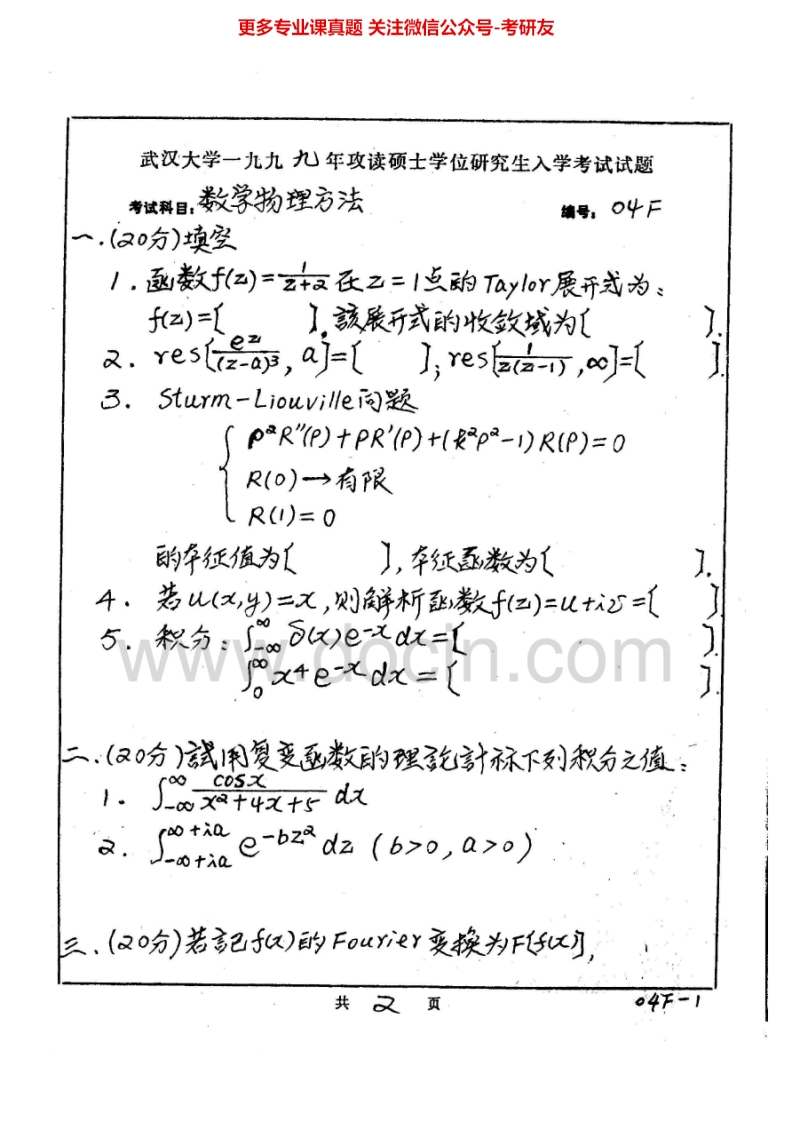 更多专业课真题 关注微信公众号-考研友
武汉大学一九九九年攻读硕士学位研究生入学考试试题
考试科目：数学物理方法 编号：04F
一.(20分)填空
1. 函数f(z)=1/(z+2)在z=1点的Taylor展开式为：
f(z)=[ ].該展开式的收敛域为[ ].
2. res[e^z/(z-a)^3, a]=[ ]; res[1/(z(z-1)),∞]=[ ].
3. Sturm-Liouville问题
ρ²R''(ρ)+ρR'(ρ)+(k²ρ²-1)R(ρ)=0
R(0)→有限
R(1)=0
的本征值为[ ],本征函数为[ ].
4. 若u(x,y)=x,则解析函数f(z)=u+iv=[ ]
5. 积分：∫_{-∞}^{∞} δ(x)e^{-x}dx=[ ].
∫_0^∞ x^4 e^{-x}dx=[ ].
www.docin.com
二.(20分)試用复变函数的理論計祘下列积分之值：
1. ∫_{-∞}^{∞} cosx/(x²+4x+5) dx
2. ∫_{-∞+ia}^{∞+ia} e^{-bz²}dz (b>0,a>0)
三.(20分)若記f(x)的Fourier变換为F[f(x)],
共 2 页 04F-1